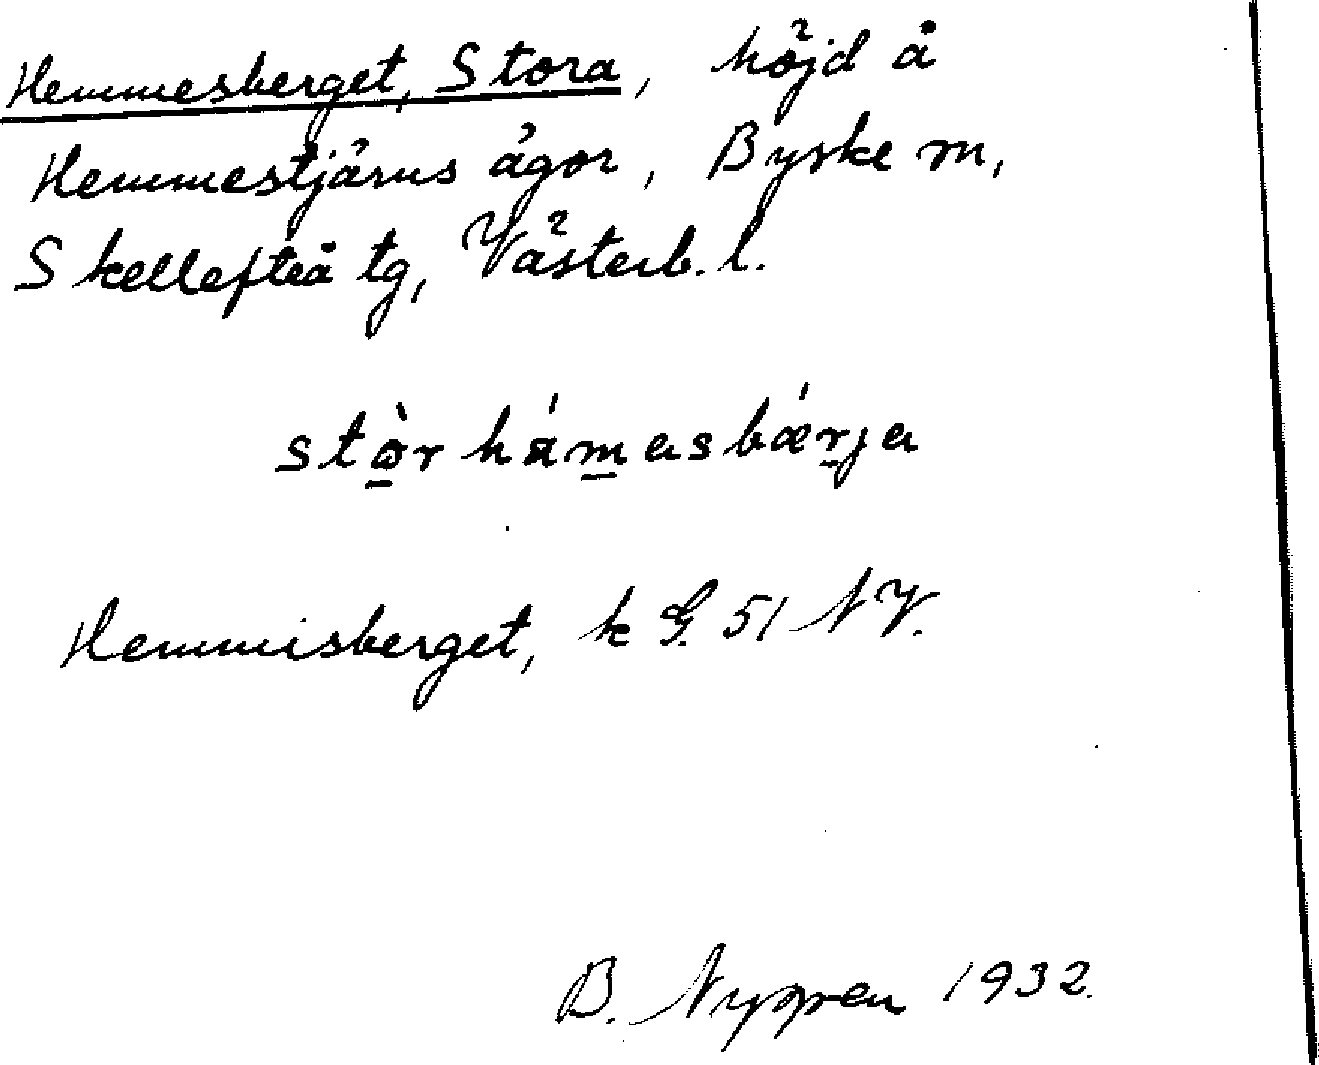 Hemmesberget, Stora, höjd å
Hemmestjärns ägor, Byske sn,
Skellefteå tg, Västerb. l.
stòr hámasbǽrja
Hemmisberget, k G. 51 NV.
B. Nygren 1932.